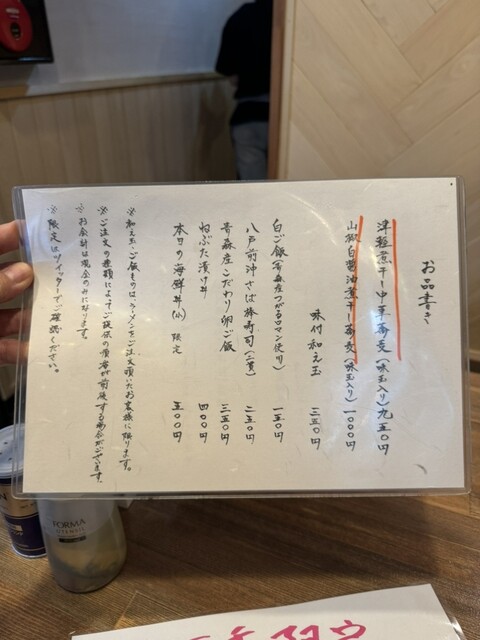 お品書き
津軽煮干し中華蕎麦(味玉入り)九五〇円
山椒白醤油煮干し蕎麦(味玉入り)一〇〇〇円
味付和え玉 三五〇円
白ご飯(青森産つがるロマン使用) 一五〇円
八戸前沖さば棒寿司(二貫) 二五〇円
青森産こだわり卵ご飯 三五〇円
ねぶた漬け丼 四〇〇円
本日の海鮮丼(小) 限定 五〇〇円
※和え玉、ご飯ものは、ラーメンをご注文頂いたお客様に限ります。
※ご注文の種類によってご提供の順番が前後する場合がございます。
※お会計は現金のみになります。
※限定はツイッターでご確認ください。
FORMA